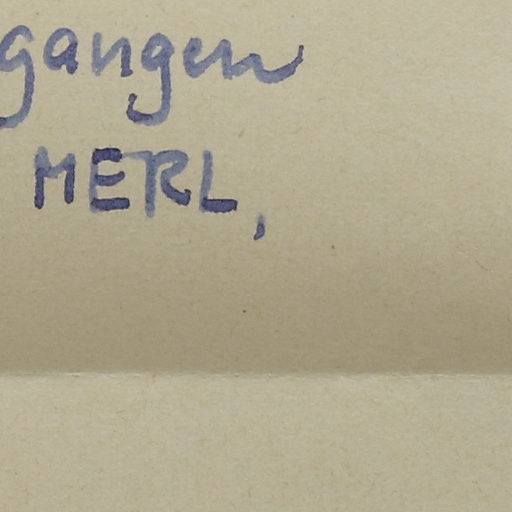 gangen
MERL,